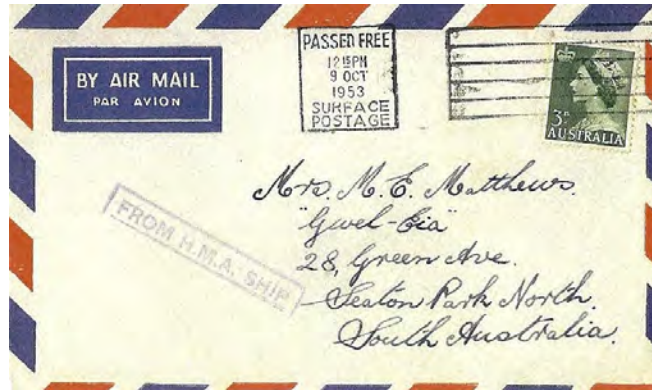 BY AIR MAIL
PAR AVION
PASSED FREE
12 15PM
9 OCT
1953
SURFACE
POSTAGE
3D
AUSTRALIA
FROM H.M.A. SHIP
Mrs. M. E. Matthews.
"Gwel-Eia"
28, Green Ave.
Seaton Park North.
South Australia.